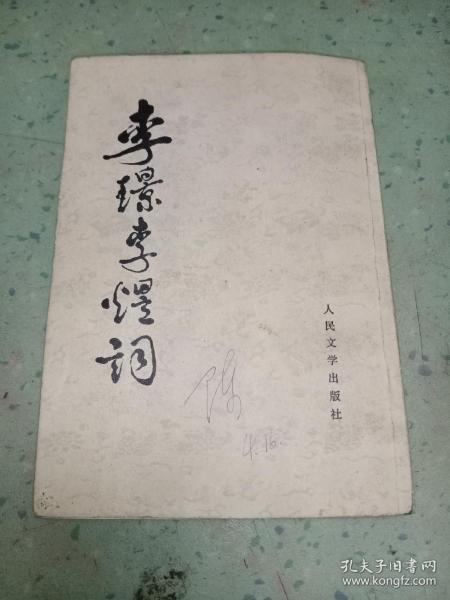 李璟李煜詞
人民文学出版社
陈
孔夫子旧书网
www.kongfz.com